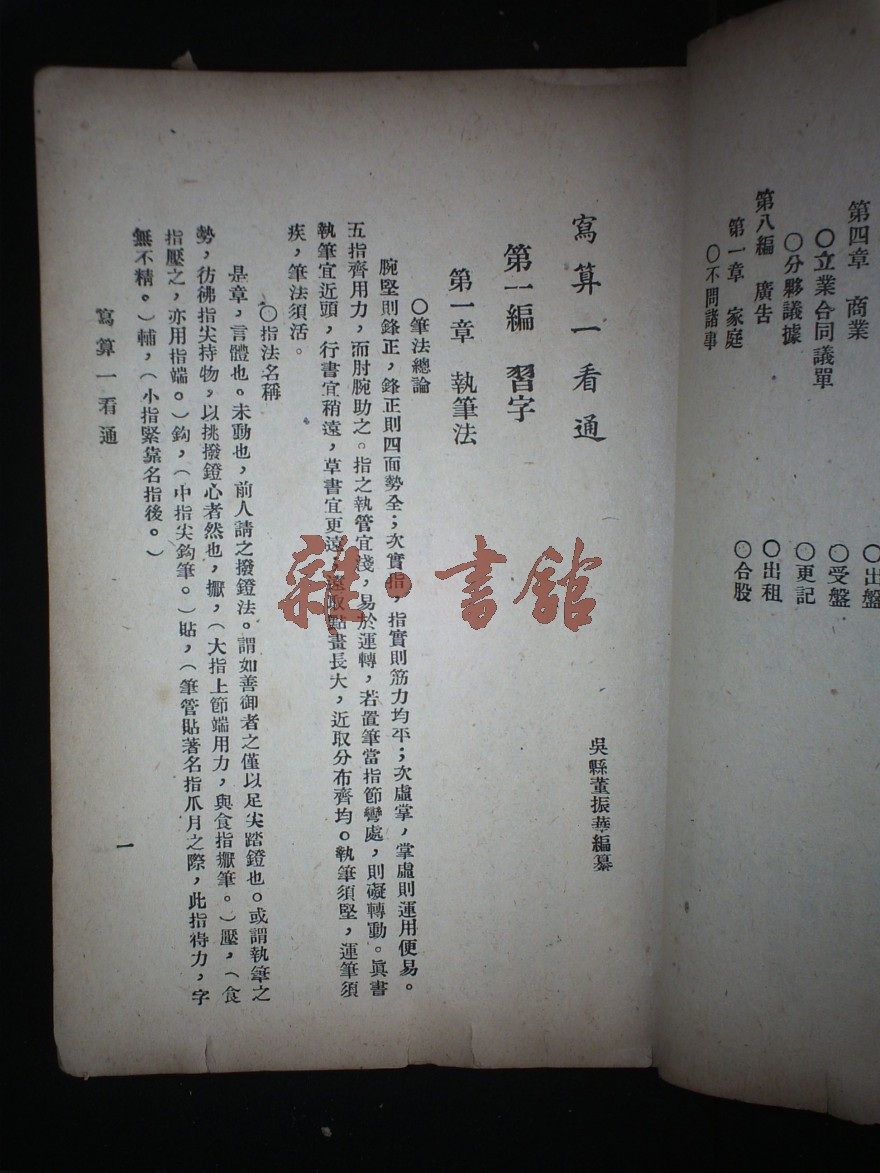 第四章 商業
〇出盤
〇立業合同議單
〇受盤
〇分夥議據
〇更記
第八編 廣告
〇出租
第一章 家庭
〇合股
〇不問諸事
寫算一看通
吳縣董振華編纂
第一編 習字
第一章 執筆法
〇筆法總論
腕堅則鋒正，鋒正則四面勢全；次實指，指實則筋力均平；次虛掌，掌虛則運用便易。
五指齊用力，而肘腕助之。指之執管宜淺，易於運轉，若置筆當指節彎處，則礙轉動。眞書
執筆宜近頭，行書宜稍遠，草書宜更遠，遠取點畫長大，近取分布齊均。執筆須堅，運筆須
疾，筆法須活。
〇指法名稱
是章，言體也。未動也，前人請之撥鐙法。謂如善御者之僅以足尖踏鐙也。或謂執筆之
勢，彷彿指尖持物，以挑撥鐙心者然也，擫，（大指上節端用力，與食指擫筆。）壓，（食
指壓之，亦用指端。）鈎，（中指尖鈎筆。）貼，（筆管貼著名指爪月之際，此指得力，字
無不精。）輔，（小指緊靠名指後。）
寫算一看通
一
雜·書館